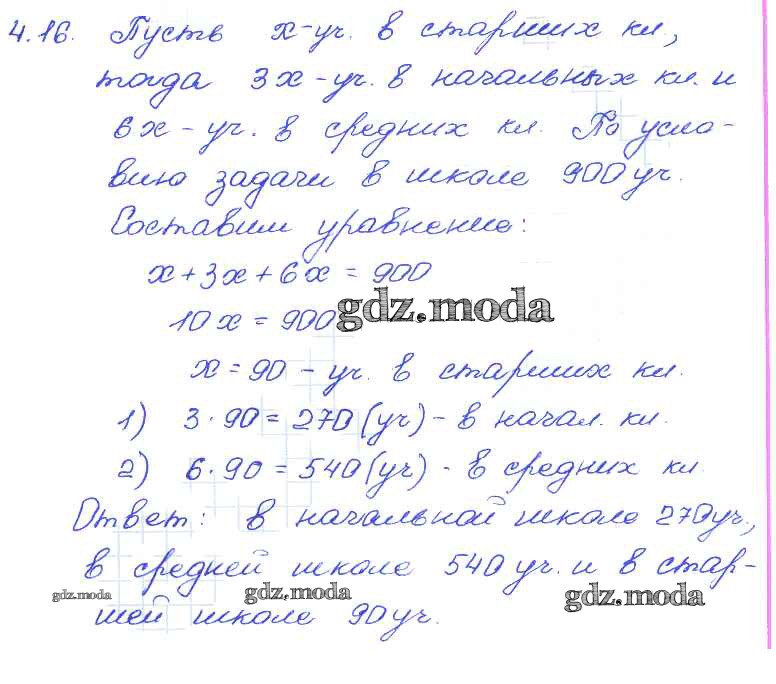 4.16. Пусть x-уч. в старших кл.,
тогда 3x-уч. в начальных кл. и
6x-уч. в средних кл. По усло-
вию задачи в школе 900 уч.
Составим уравнение:
x+3x+6x=900
10x=900
gdz.moda
x=90-уч. в старших кл.
1) 3·90=270(уч)-в начал. кл.
2) 6·90=540(уч)-в средних кл.
Ответ: в начальной школе 270уч.,
в средней школе 540 уч. и в стар-
gdz.moda gdz.moda gdz.moda
шей школе 90 уч.